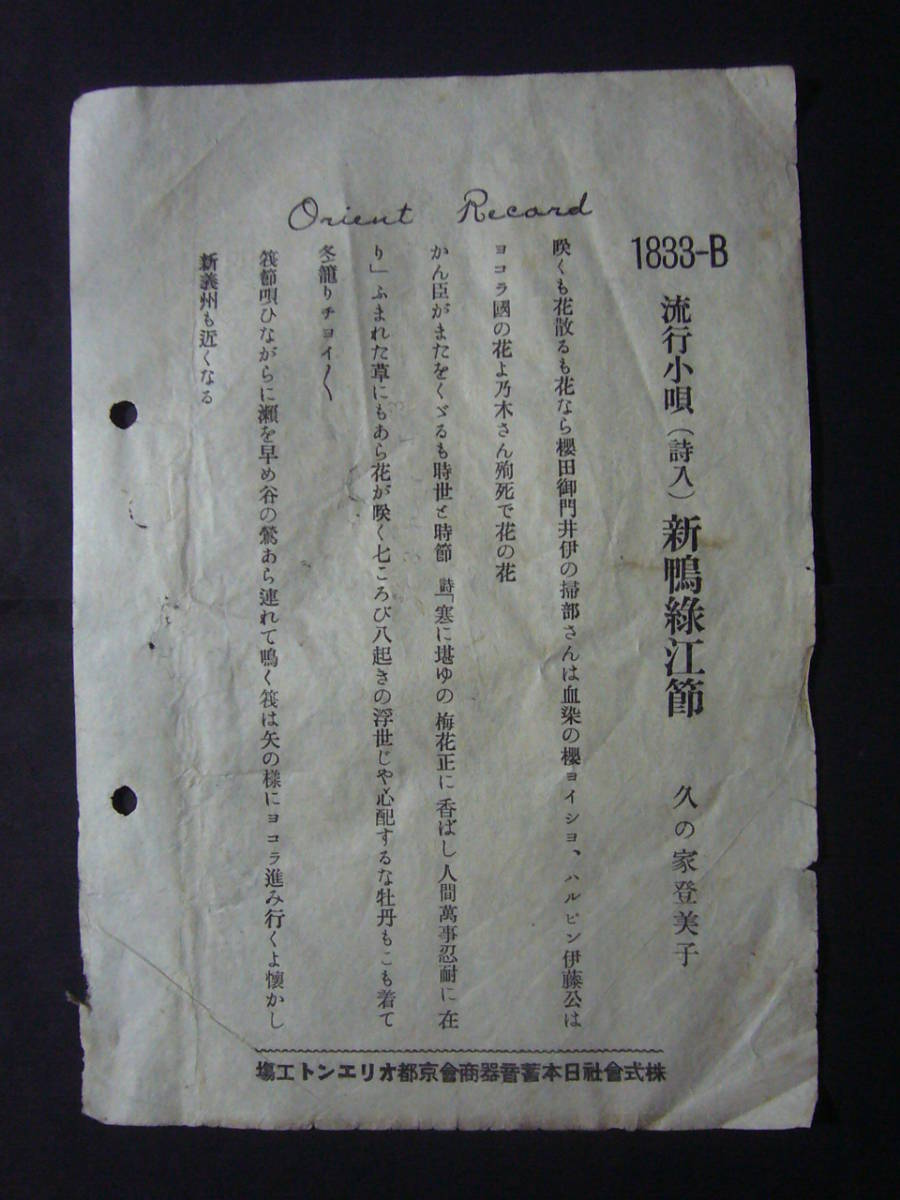 Orient Record
1833-B
流行小唄（詩入）新鴨綠江節
久の家登美子
咲くも花散るも花なら櫻田御門井伊の掃部さんは血染の櫻ヨイショ、ハルピン伊藤公は
ヨコラ國の花よ乃木さん殉死で花の花
かん臣がまたをくゞるも時世と時節　詩「寒に堪ゆの梅花正に香ばし人間萬事忍耐に在
り」ふまれた草にもあら花が咲く七ころび八起きの浮世じや心配するな牡丹もこも着て
冬籠りチョイ〱
筏節唄ひながらに瀬を早め谷の鶯あら連れて鳴く筏は矢の樣にヨコラ進み行くよ懷かし
新義州も近くなる
株式會社日本蓄音器商會京都オリエント工場